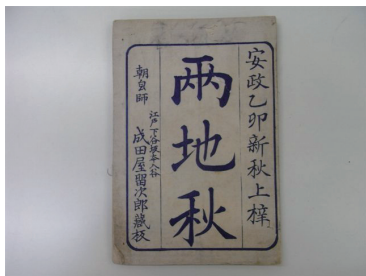 安政乙卯新秋上梓
兩地秋
朝皃師
江戸下谷坂本入谷
成田屋留次郎藏板